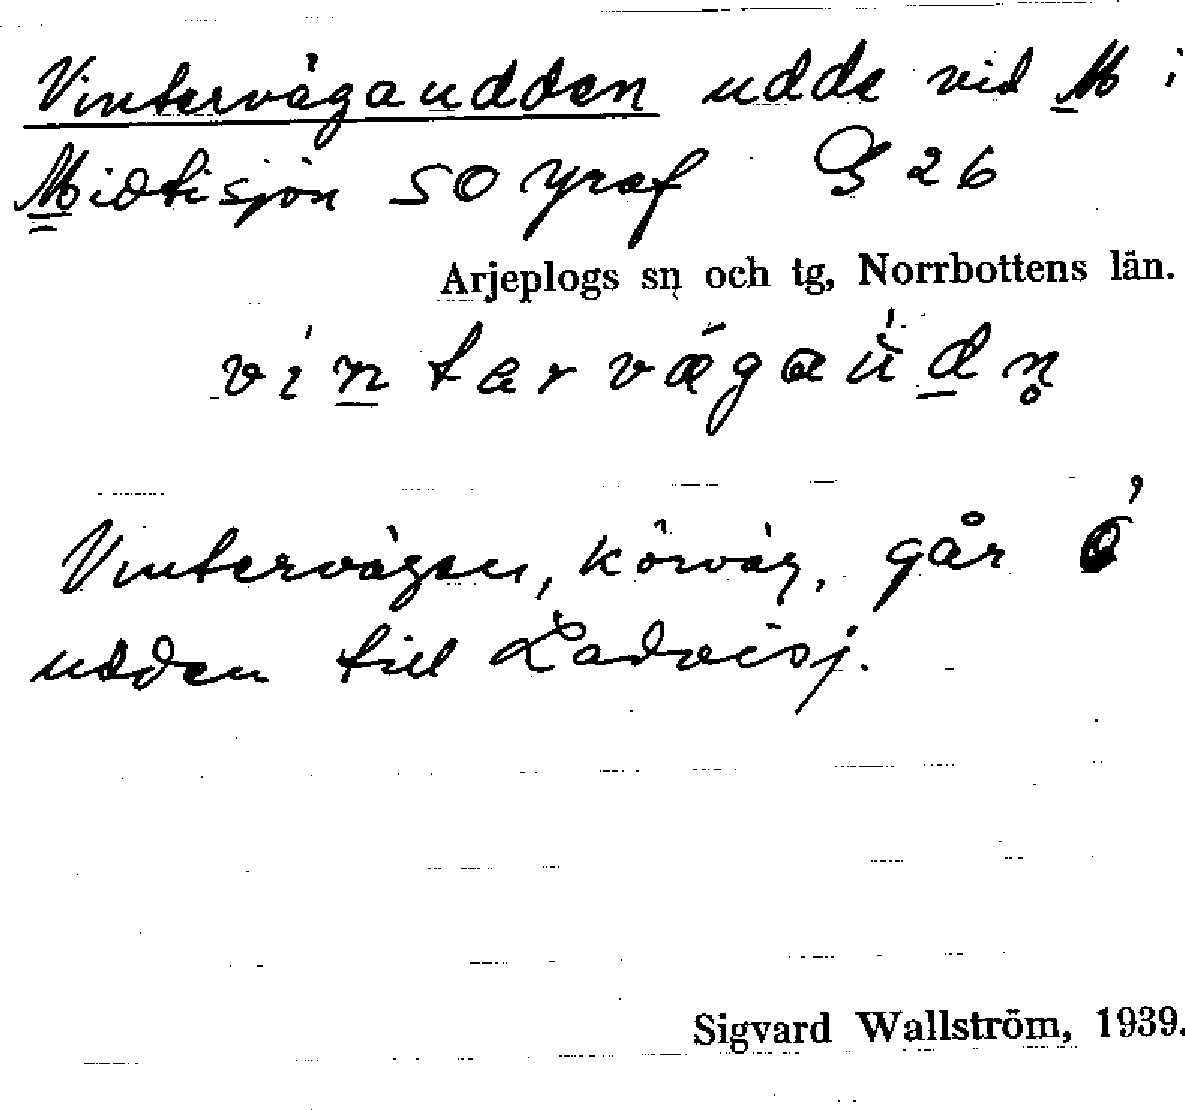 Vintervägaudden udde vid M i
Midtisjön SO Yraf G 26
Arjeplogs sn och tg, Norrbottens län.
vintervägaùdn̥
Vintervägen, körväg, går ó
udden till Ladveisj.
Sigvard Wallström, 1939.